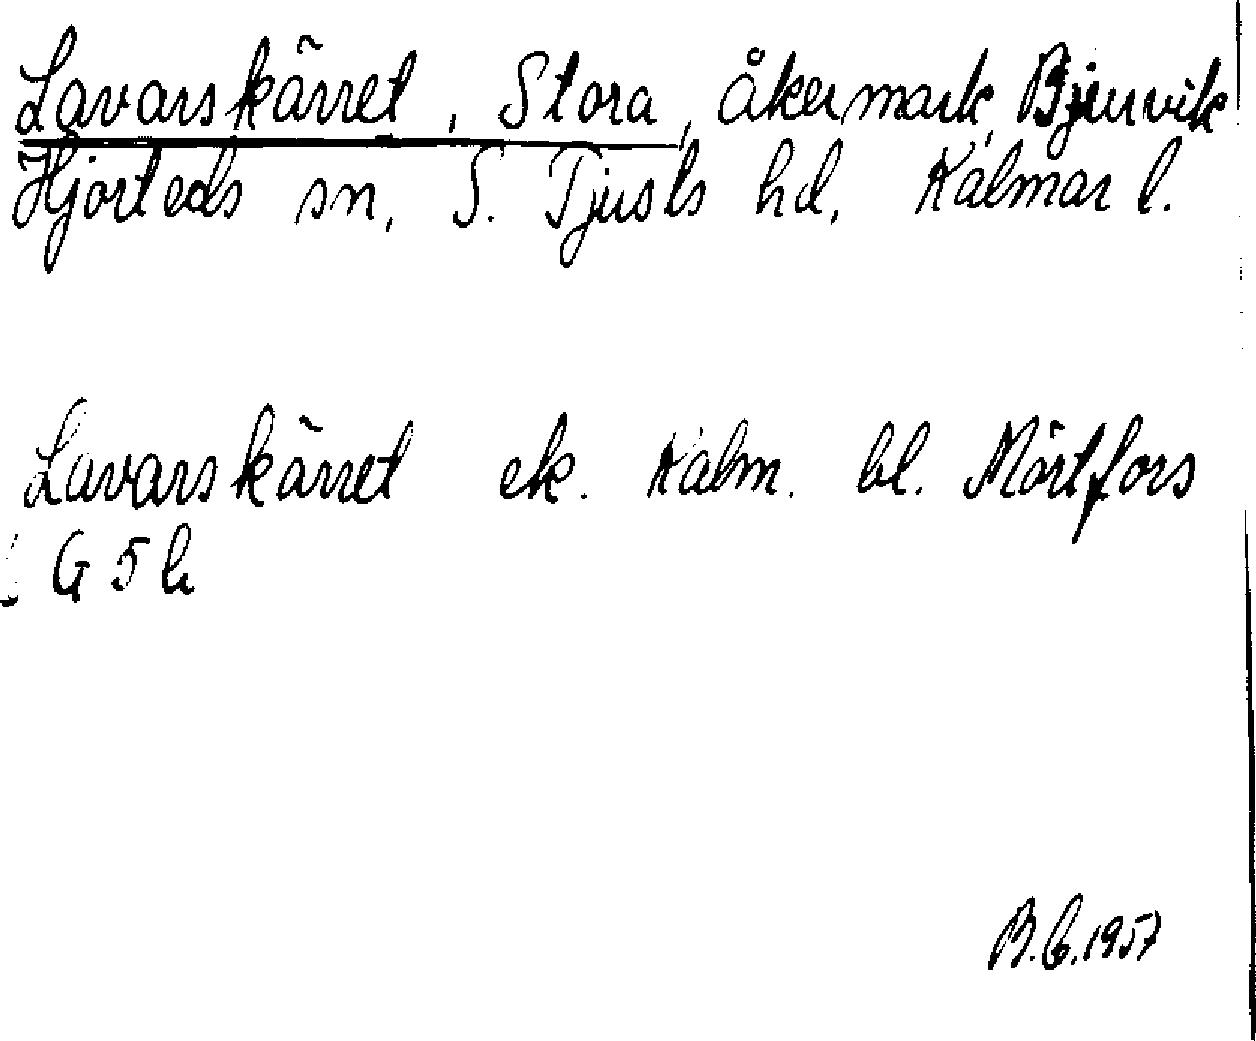 Lavarskärret, Stora, åkermark, Bjurvik
Hjorteds sn, S. Tjusts hd, Kalmar l.
Lavarskärret ek. Kalm. bl. Mörtfors
G 5 h
B.C. 1957